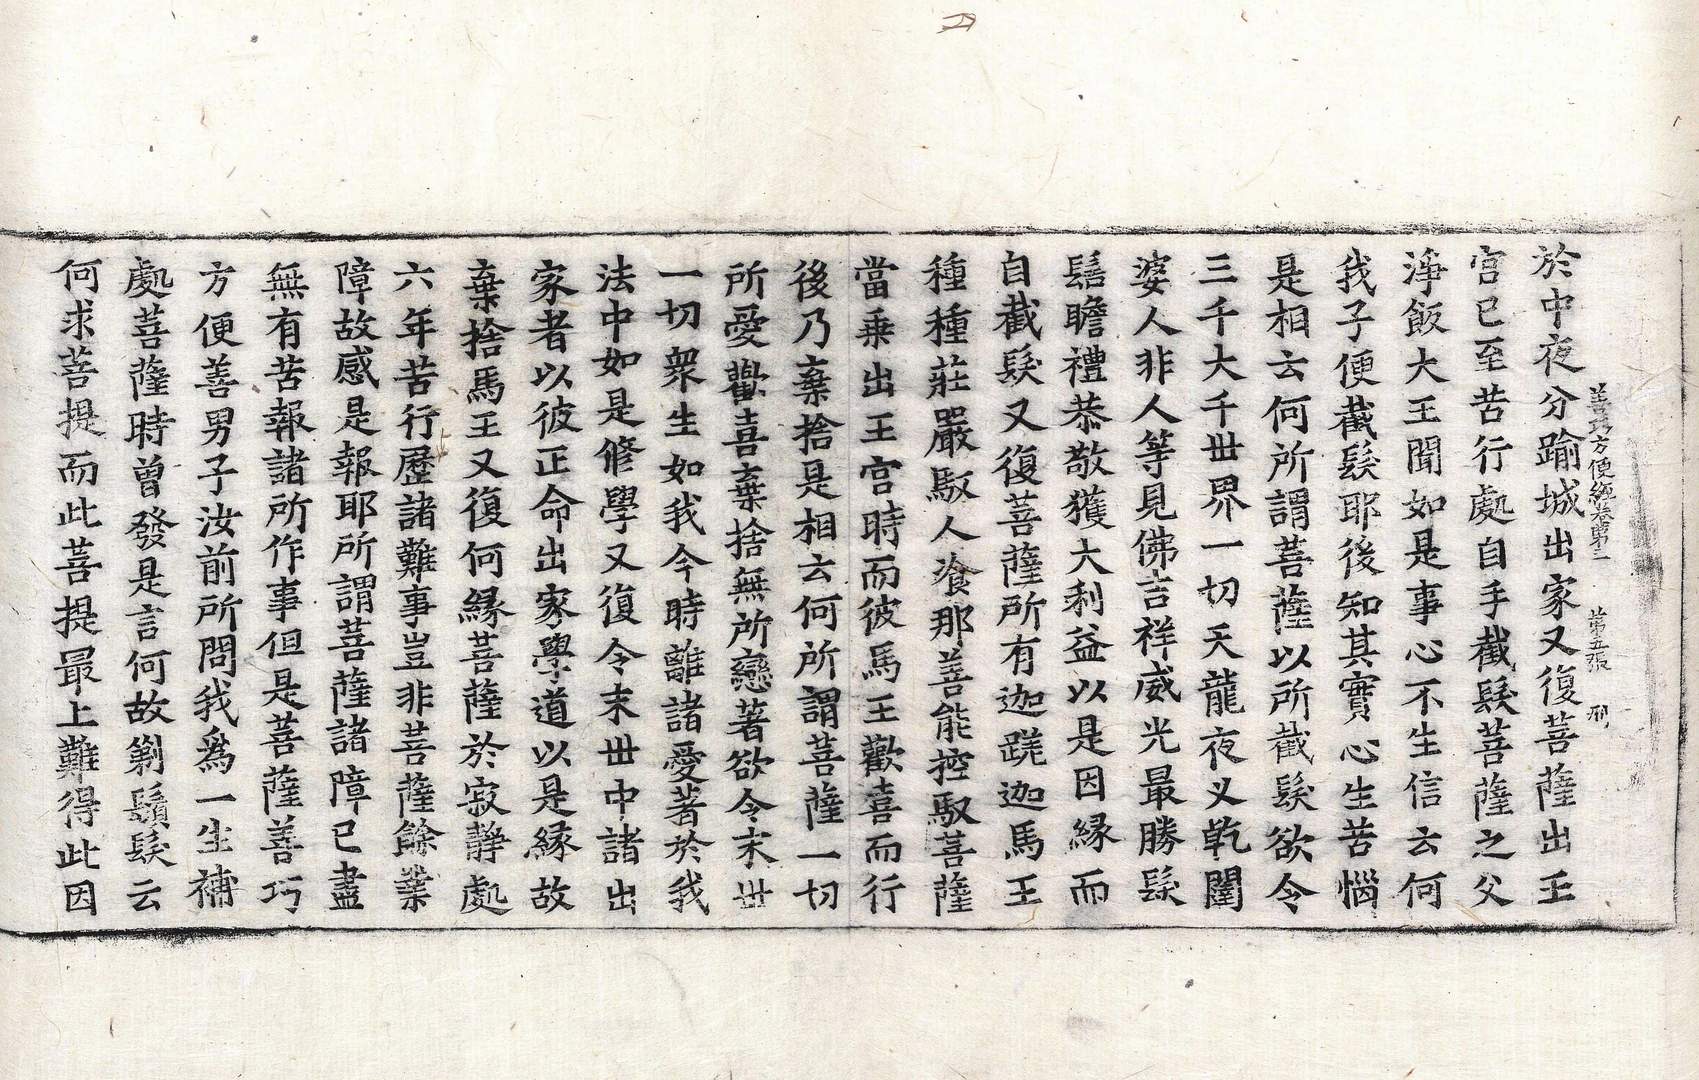 善巧方便經卷第三 第五張 刑
於中夜分踰城出家又復菩薩出王
宮已至苦行處自手截髮菩薩之父
淨飯大王聞如是事心不生信云何
我子便截髮耶後知其實心生苦惱
是相云何所謂菩薩以所截髮欲令
三千大千世界一切天龍夜叉乾闥
婆人非人等見佛吉祥威光最勝髮
髻瞻禮恭敬獲大利益以是因緣而
自截髮又復菩薩所有迦蹉迦馬王
種種莊嚴馭人湌那善能控馭菩薩
當乘出王宮時而彼馬王歡喜而行
後乃棄捨是相云何所謂菩薩一切
所愛歡喜棄捨無所戀著欲令末世
一切眾生如我今時離諸愛著於我
法中如是修學又復令末世中諸出
家者以彼正命出家學道以是緣故
棄捨馬王又復何緣菩薩於寂靜處
六年苦行歷諸難事豈非菩薩餘業
障故感是報耶所謂菩薩諸障已盡
無有苦報諸所作事但是菩薩善巧
方便善男子汝前所問我為一生補
處菩薩時曾發是言何故剃鬚髮云
何求菩提而此菩提最上難得此因